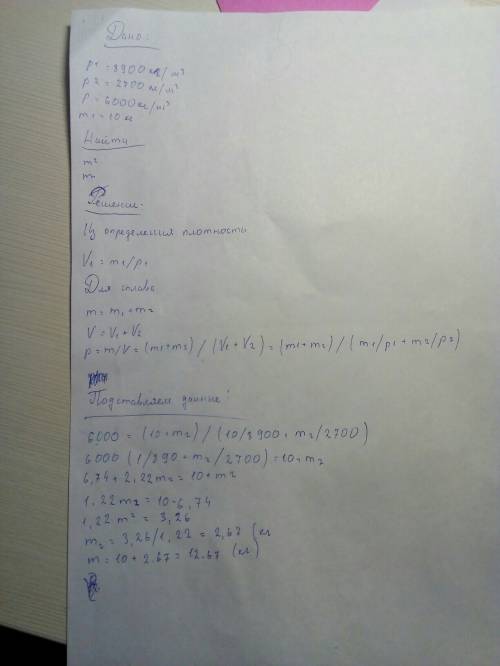 Дано:
ρ1 = 8900 кг/м³
ρ2 = 2700 кг/м³
ρ = 6000 кг/м³
m1 = 10 кг
Найти
m2
m
Решение.
Из определения плотности
V1 = m1/ρ1
Для сплава
m = m1 + m2
V = V1 + V2
ρ = m/V = (m1+m2) / (V1 + V2) = (m1+m2) / (m1/ρ1 + m2/ρ2)
Подставляем данные:
6000 = (10+m2) / (10/8900 + m2/2700)
6000 (1/890 + m2/2700) = 10+m2
6,74 + 2,22m2 = 10+m2
1,22m2 = 10-6,74
1,22m2 = 3,26
m2 = 3,26/1,22 = 2,67 (кг
m = 10 + 2.67 = 12.67 (кг)